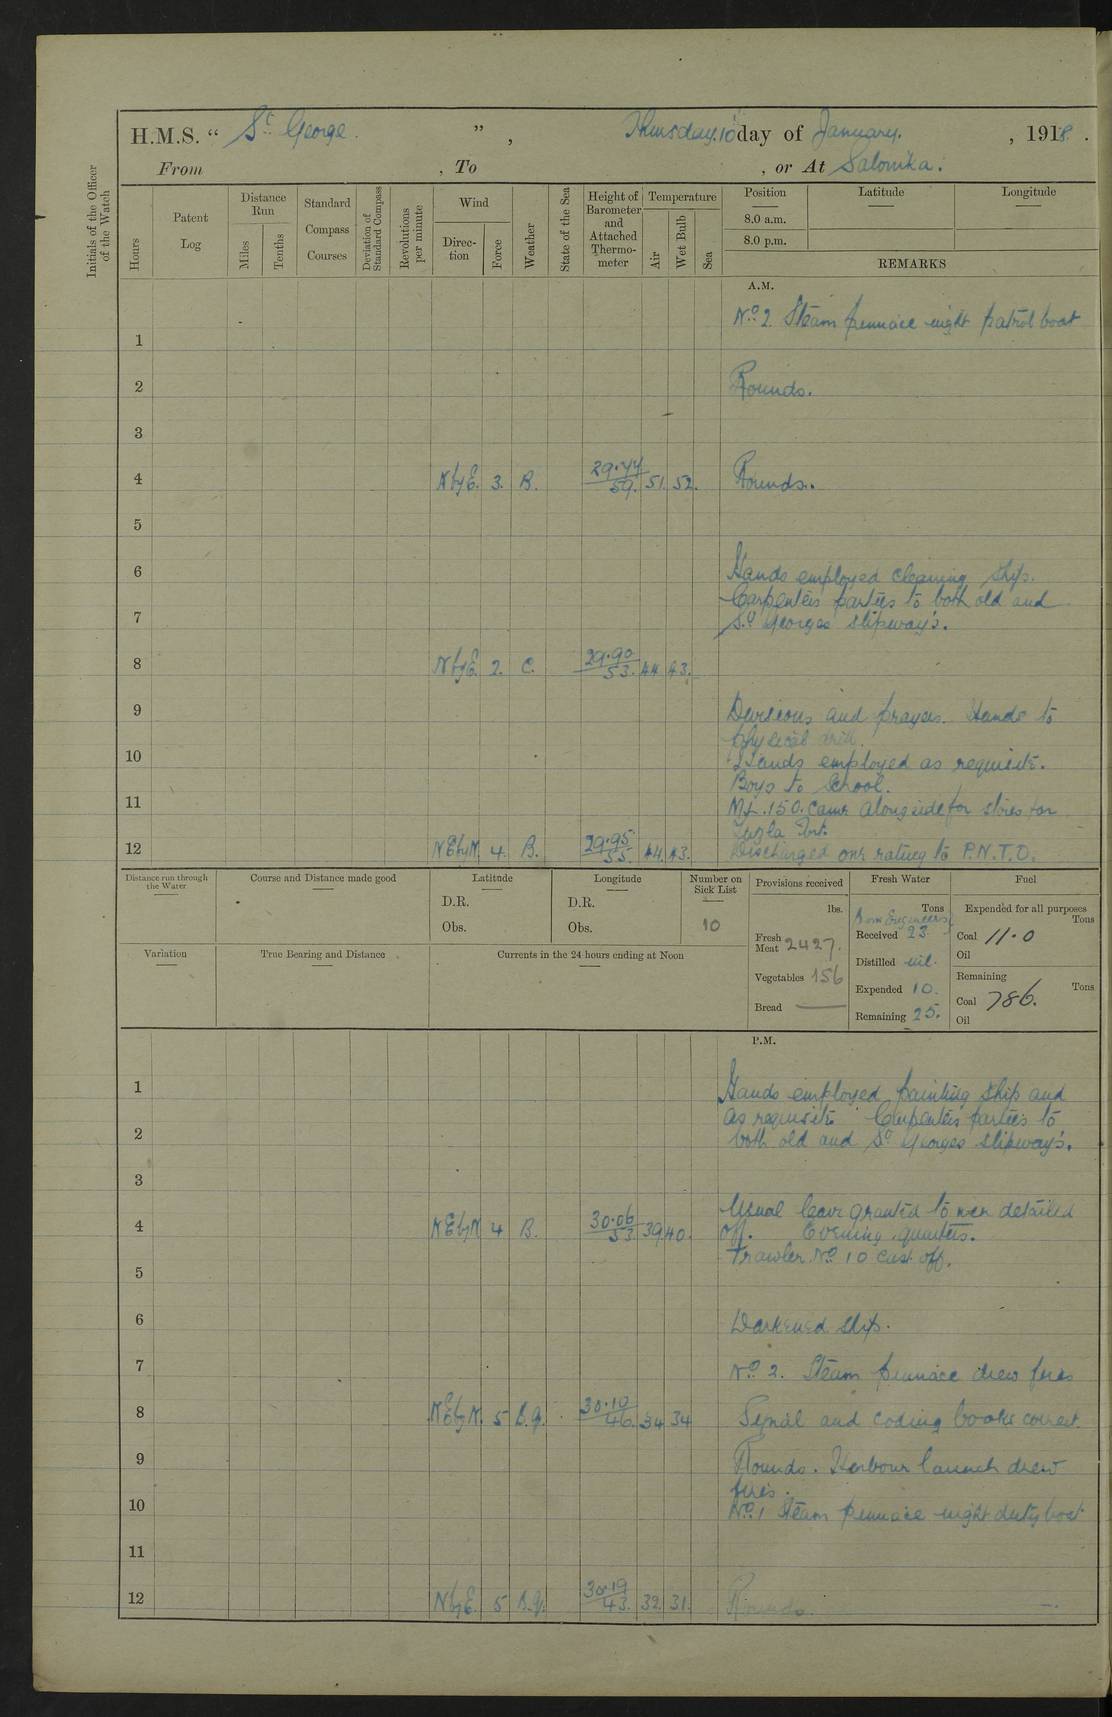 H.M.S. “ St. George. ” , Thursday. 10th day of January. , 1918.
From , To , or At Salonika.
Initials of the Officer of the Watch
Hours
Patent Log
Distance Run
Miles
Tenths
Standard Compass Courses
Deviation of Standard Compass
Revolutions per minute
Wind
Direc-tion
Force
Weather
State of the Sea
Height of Barometer and Attached Thermo-meter
Temperature
Air
Wet Bulb
Sea
Position Latitude Longitude
8.0 a.m.
8.0 p.m.
REMARKS
A.M.
No. 2 Steam pinnace night patrol boat
1
2 Rounds.
3
4 N by E. 3. B. 29.44 59. 51. 52. Rounds.
5
6 Hands employed cleaning ship.
Carpenters parties to both old and
7 St Georges slipway's.
8 N by E. 2. C. 29.90 53. 44 43.
9 Divisions and prayers. Hands to
physical drill.
10 Hands employed as requisite.
Boys to School.
11 ML.150. came alongside for stores for
12 NE by N. 4. B. 29.95 55. 44. 43. Discharged one rating to P.N.T.O.
Distance run through the Water
Course and Distance made good
Latitude
D.R.
Obs.
Longitude
D.R.
Obs.
Number on Sick List
10
Provisions received
lbs.
Fresh Meat 2427.
Vegetables 156
Bread —
Fresh Water
Tons
From Engineers
Received 23.
Distilled nil.
Expended 10.
Remaining 25.
Fuel
Expended for all purposes
Tons
Coal 11.0
Oil
Remaining
Tons
Coal 786.
Oil
Variation
True Bearing and Distance
Currents in the 24 hours ending at Noon
P.M.
1 Hands employed painting ship and
as requisite Carpenters parties to
2 both old and St Georges slipway's.
3
Usual leave granted to men detailed
4 NE by N 4 B. 30.06 53 39 40. off. Evening quarters.
Trawler No 10 cast off.
5
6 Darkened ship.
7 No. 2. Steam pinnace drew fires
8 NE by N. 5 B.q. 30.10 46. 34 34 Signal and coding books correct.
9 Rounds. Harbour launch drew
fires.
10 No. 1 Steam pinnace night duty boat
11
12 N by E. 5 B.q. 30.19 43. 32. 31. Rounds.